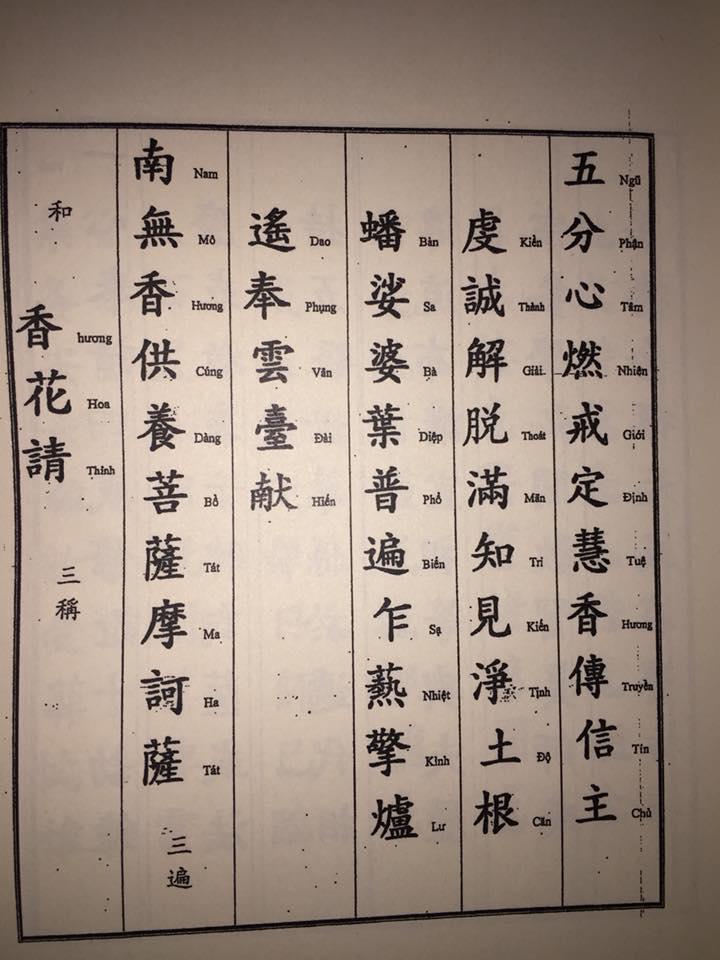 五分心燃戒定慧香傳信主
Ngũ Phận Tâm Nhiên Giới Định Tuệ Hương Truyền Tín Chủ
虔誠解脱滿知見淨土根
Kiền Thành Giải. Thoát Mãn Tri Kiến Tịnh Độ Căn
蟠娑婆葉普遍乍爇擎爐
Bàn Sa Bà Diệp Phổ Biến Sạ Nhiệt Kình Lư
遙奉雲臺献
Dao Phụng Vân Đài Hiến
南無香供養菩薩摩訶薩 三遍
Nam Mô Hương Cúng Dàng Bồ Tát Ma Ha Tát
和 香花請 三稱
hương Hoa Thỉnh